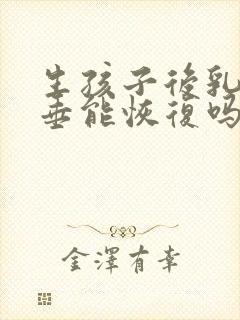 生孩子後乳
垂能恢復吗
金澤有幸